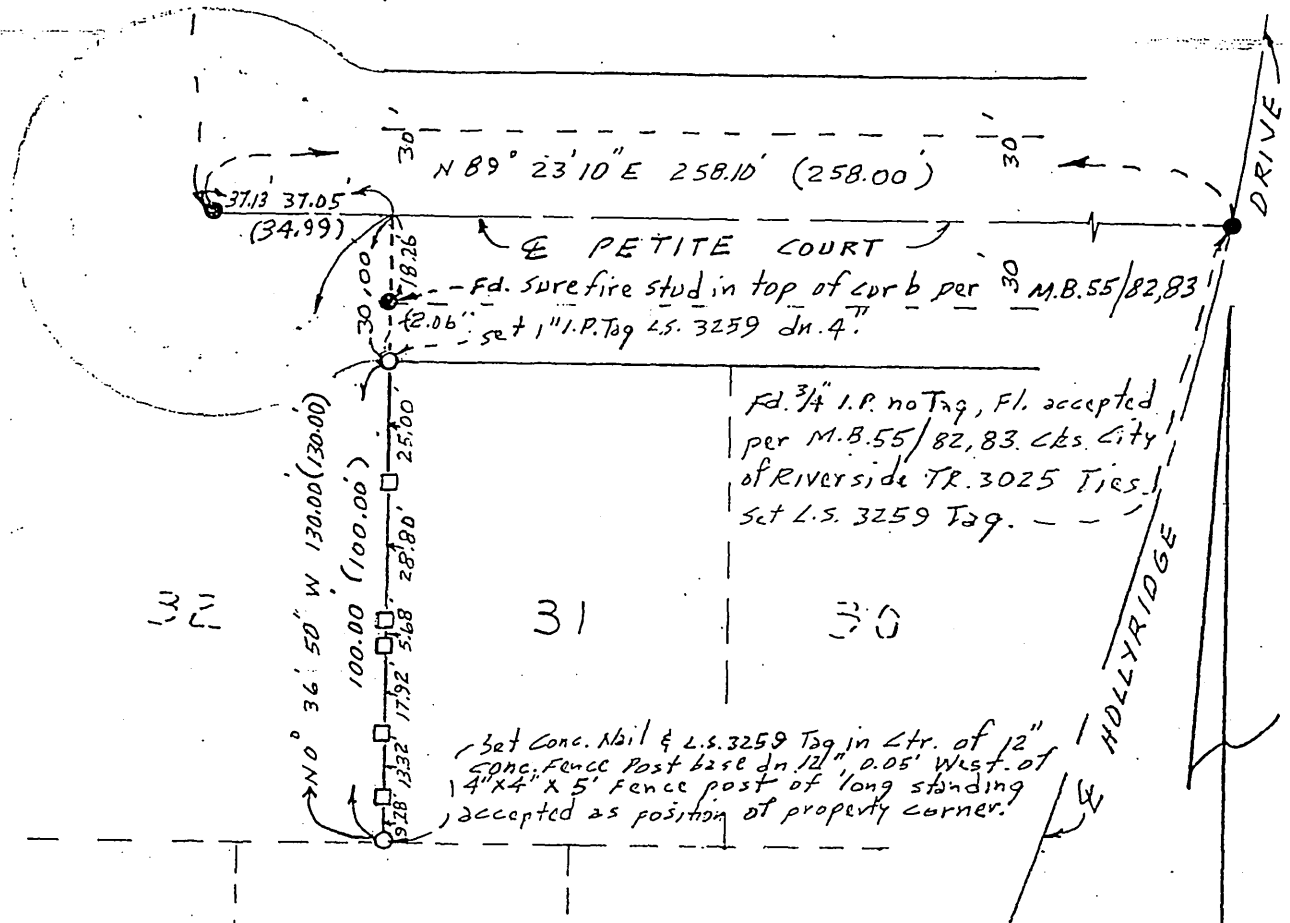 30' 30'
N 89° 23' 10" E 258.10' (258.00')
DRIVE
37.13' 37.05'
(34.99)
℄ PETITE COURT
18.26'
30.00
Fd. surefire stud in top of curb per M.B.55/82,83
30
(2.06'
set 1" I.P. Tag L.S. 3259 dn. 4".
Fd. 3/4" I.P. no Tag, Fl. accepted
per M.B.55/82,83. Cks. City
of Riverside TR. 3025 Ties
set L.S. 3259 Tag.
N 0° 36' 50" W 130.00' (130.00')
100.00' (100.00')
25.00'
28.80'
5.68'
17.92'
13.32'
9.28'
32
31
30
℄ HOLLYRIDGE
Set Conc. Nail & L.S.3259 Tag in Ctr. of 12"
Conc. Fence Post base dn. 12", 0.05' West of
4"X4" X 5' Fence post of long standing
accepted as position of property corner.